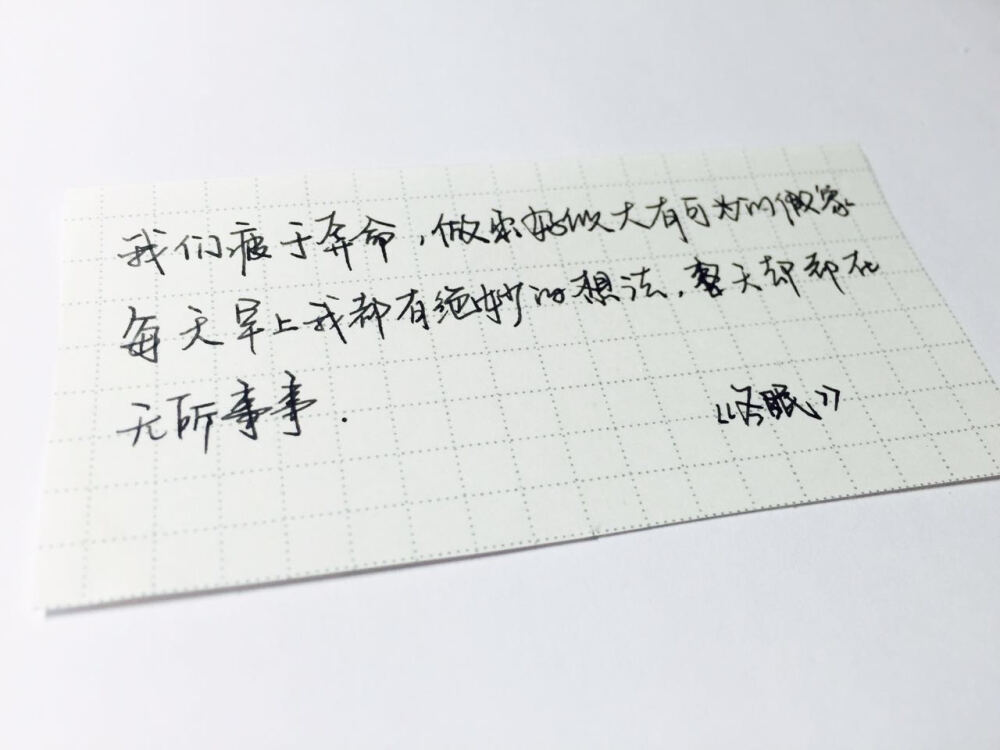 我们疲于奔命，做出好似大有可为的假象
每天早上我都有绝妙的想法，整天却都在
无所事事.
《冬眠》